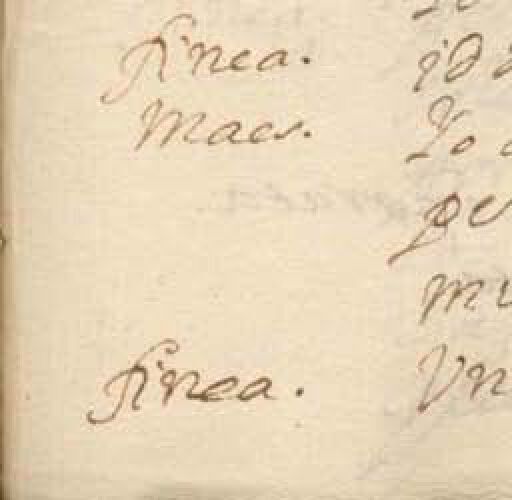 finea. id
Maes. Yo
per
mu
finea. Vn